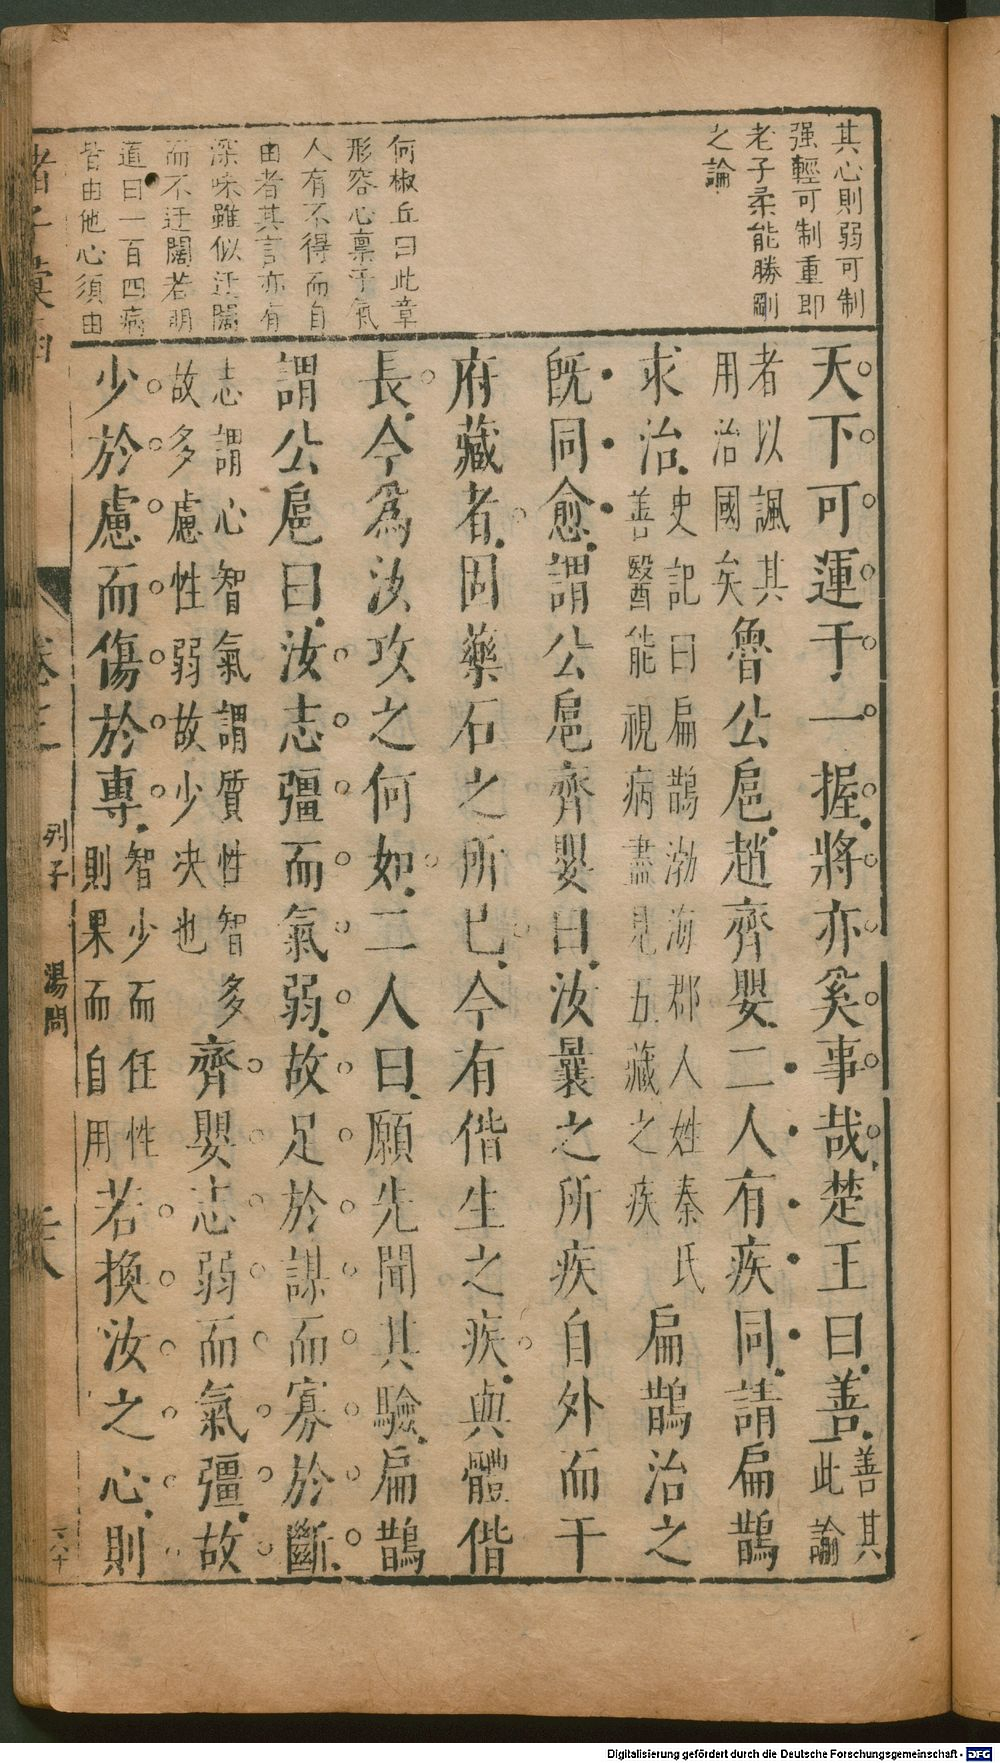 其心則弱可制
强輕可制重即
老子柔能勝剛
之論
何椒丘曰此章
形容心禀乎氣
人有不得而自
由者其言亦有
深味雖似迂闊
而不迂闊若明
道曰一百四病
皆由他心須由
天下可運于一握將亦奚事哉楚王曰善
善其
此諭
者以諷其
用治國矣
魯公扈趙齊嬰二人有疾同請扁鵲
求治
史記曰扁鵲渤海郡人姓秦氏
善醫能視病盡見五藏之疾
扁鵲治之
旣同愈謂公扈齊嬰曰汝曩之所疾自外而干
府藏者固藥石之所已今有偕生之疾與體偕
長今爲汝攻之何如二人曰願先聞其驗扁鵲
謂公扈曰汝志彊而氣弱故足於謀而寡於斷
志謂心智氣謂質性智多
故多慮性弱故少决也
齊嬰志弱而氣彊故
少於慮而傷於專
智少而任性
則果而自用
若換汝之心則
卷三
列子
湯問
Digitalisierung gefördert durch die Deutsche Forschungsgemeinschaft - DFG